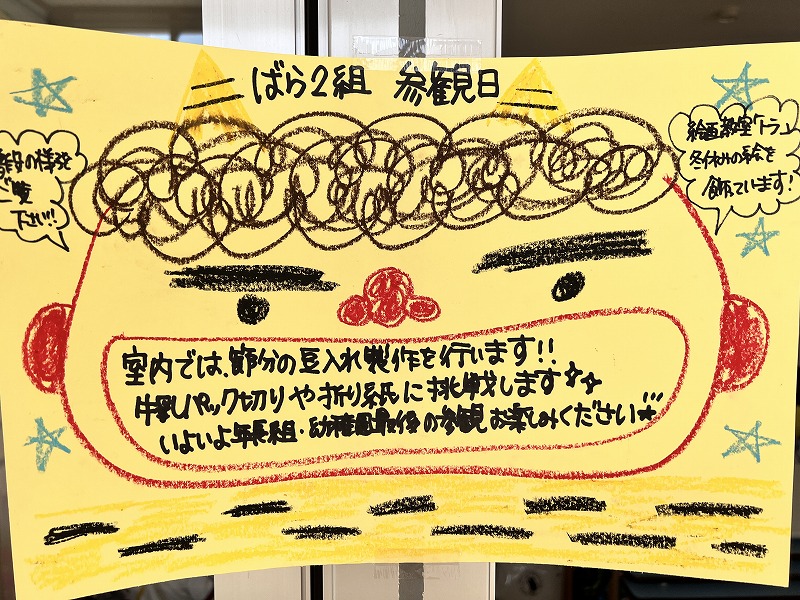 ばら2組 参観日
の様子
ご覧
下さい!!
絵画教室「トラム
冬休みの絵を
飾っています!
室内では、節分の豆入れ製作を行います!!
牛乳パック切りや折り紙に挑戦します
いよいよ年長組・幼稚園最後の参観お楽しみください